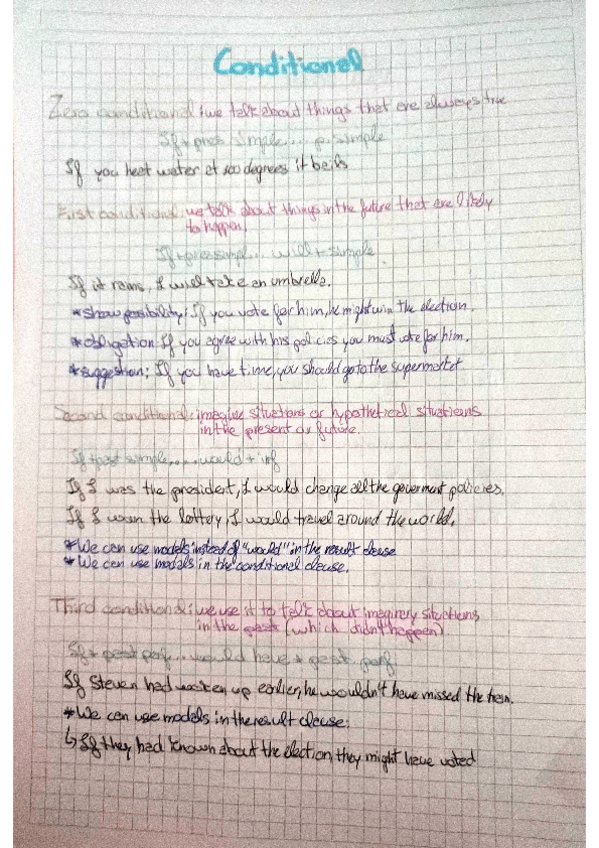 Conditional
Zero conditional: we talk about things that are always true
If + pres simple.... p. simple
If you heat water at 100 degrees it boils
First conditional: we talk about things in the future that are likely
to happen.
If + pres simple... will + simple
If it rains, I will take an umbrella.
*show possibility: If you vote for him, he might win the election.
*obligation: If you agree with his policies you must vote for him.
*suggestion: If you have time, you should go to the supermarket
Second conditional: imagine situations or hypothetical situations
in the present or future.
If + past simple..... would + inf
If I was the president, I would change all the goverment policies.
If I won the lottery, I would travel around the world.
*We can use modals instead of "would" in the result clause
*We can use modals in the conditional clause.
Third conditional: we use it to talk about imaginary situations
in the past (which didn't happen).
If + past perf... would have + past perf.
If Steven had up earlier, he wouldn't have missed the train.
*We can use modals in the result clause:
↳ If they had known about the election, they might have voted